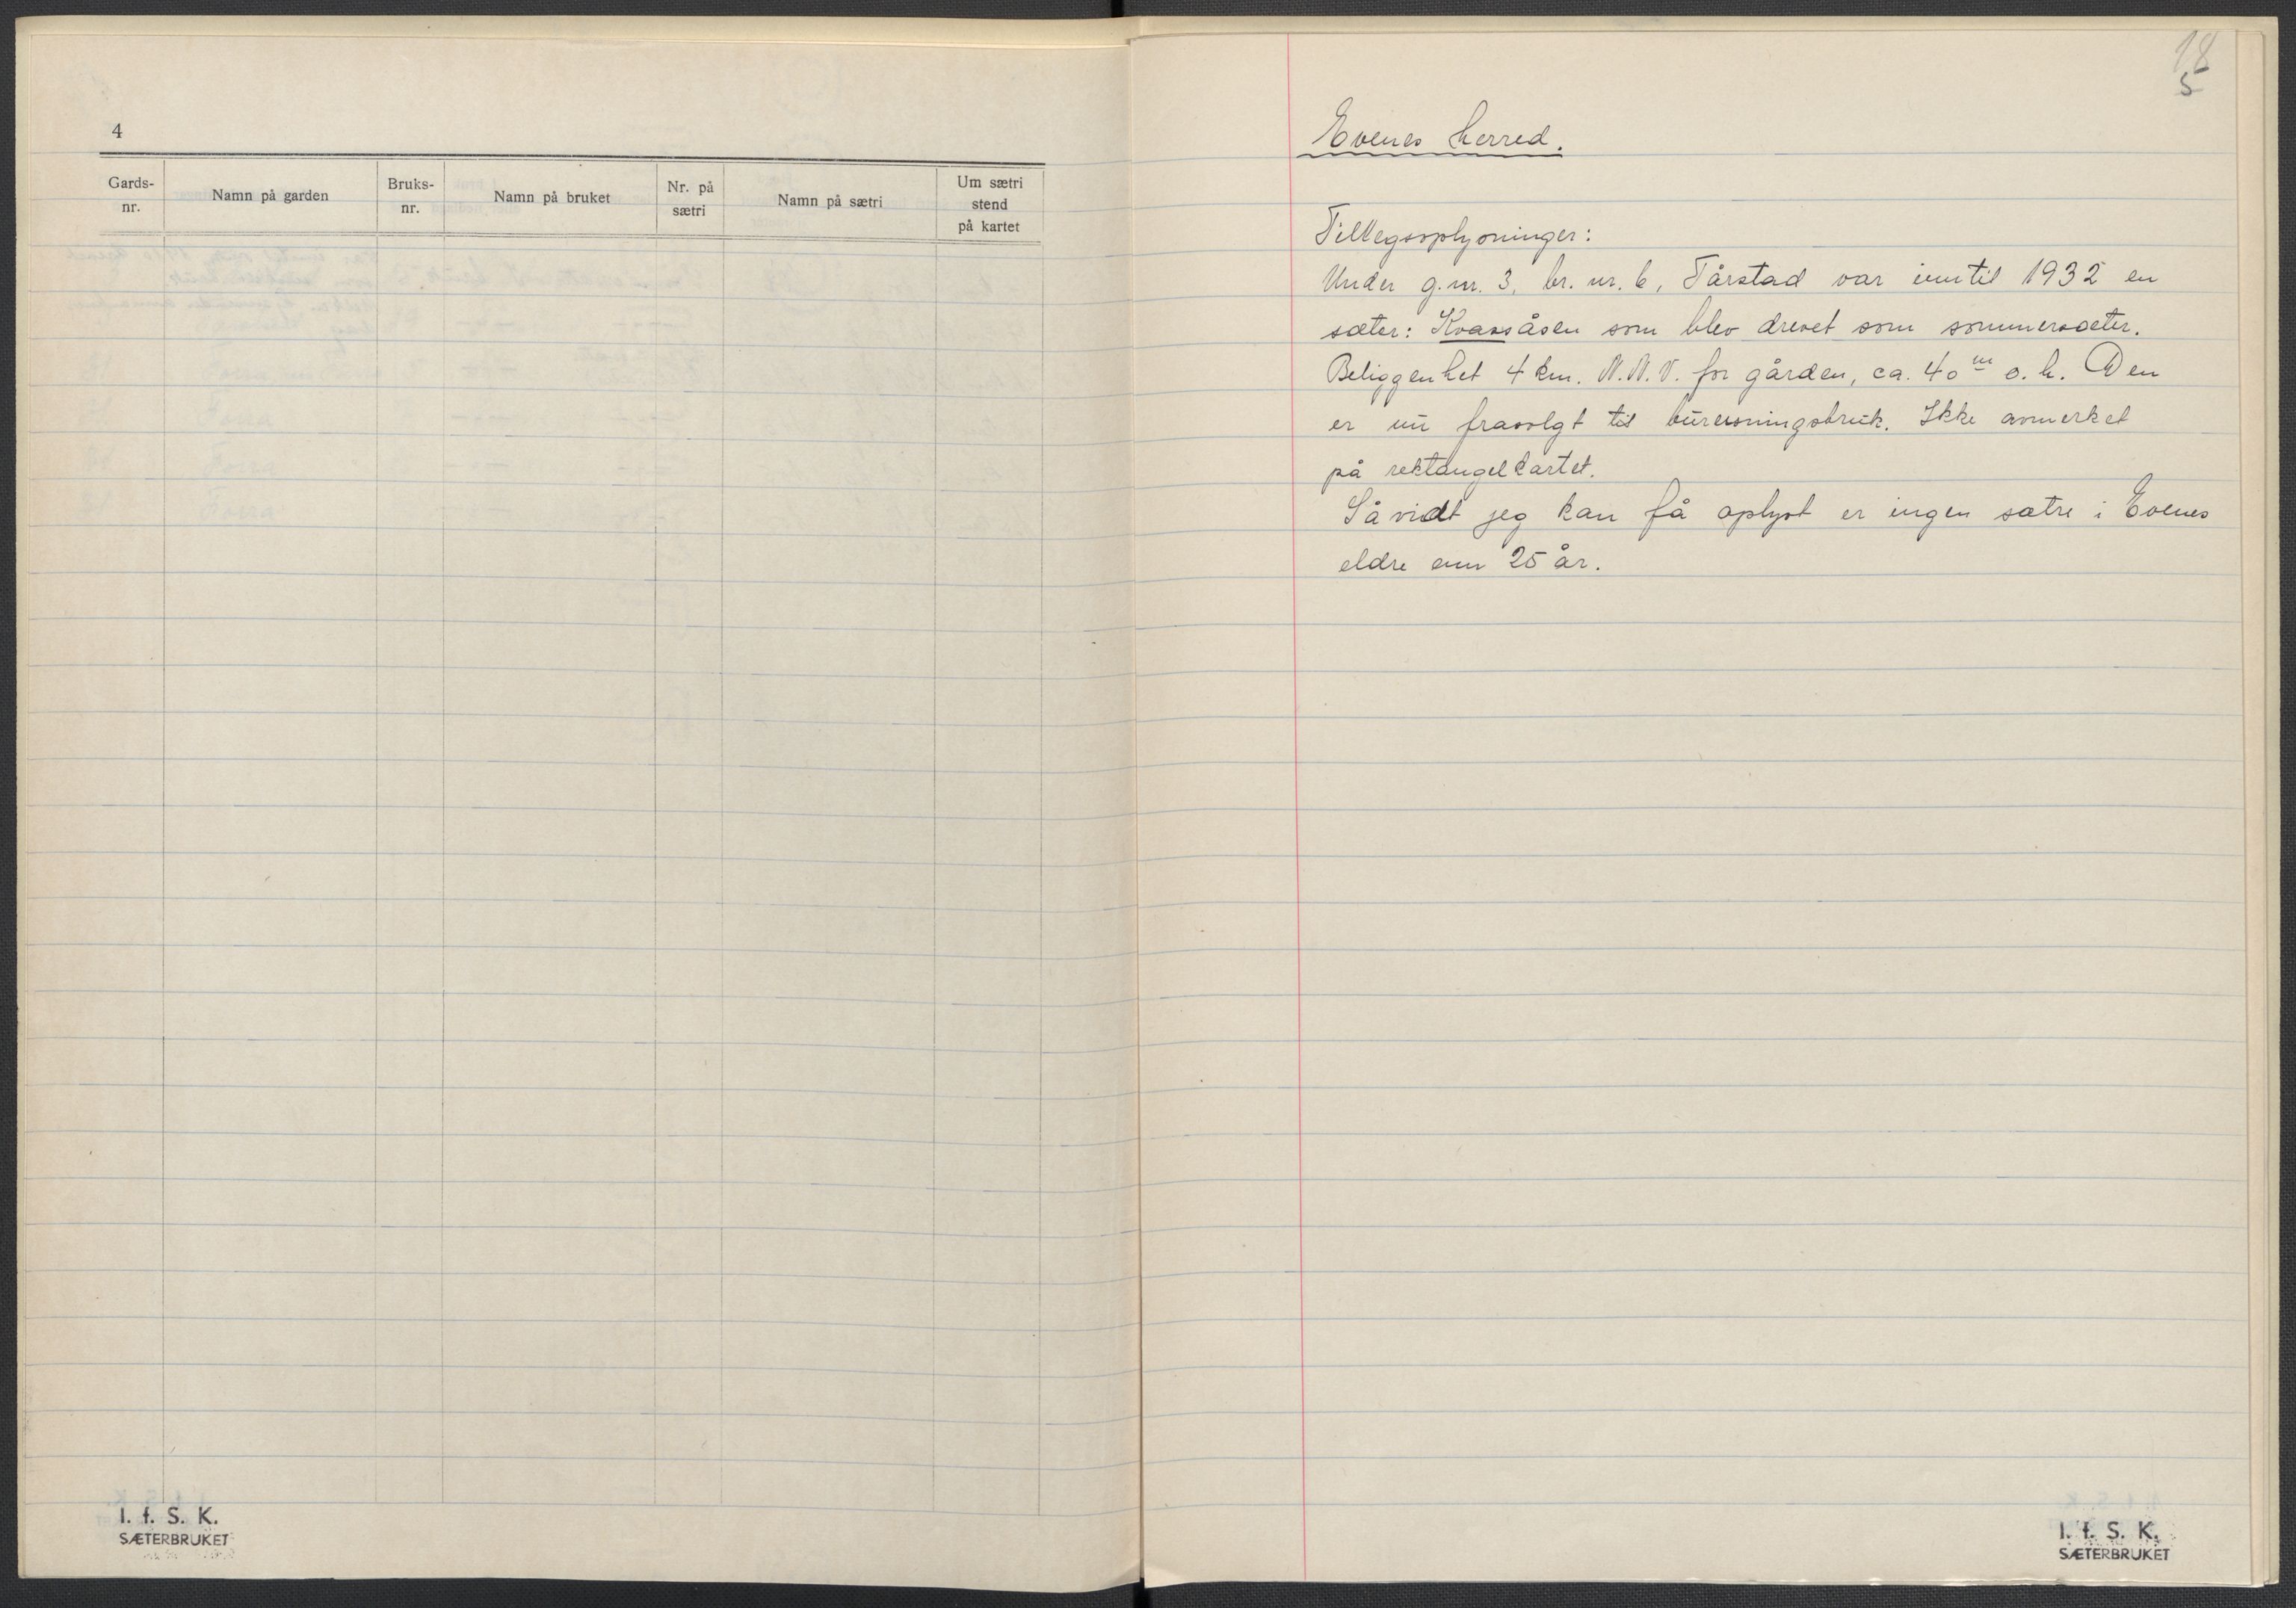 4
Gards-
nr.
Namn på garden
Bruks-
nr.
Namn på bruket
Nr. på
sætri
Namn på sætri
Um sætri
stend
på kartet
I. f. S. K.
SÆTERBRUKET
18
5
Evenes herred.
Tilleggsoplysninger:
Under g.nr. 3, br. nr. 6, Tårstad var inntil 1932 en
sæter: Kvassåsen som blev drevet som sommersæter.
Beliggenhet 4 km. N.N.V. for gården, ca. 40 m o. h. Den
er nu frasolgt til bureisningsbruk. Ikke avmerket
på rektangelkartet.
Såvidt jeg kan få oplyst er ingen sætre i Evenes
eldre enn 25 år.
I. f. S. K.
SÆTERBRUKET